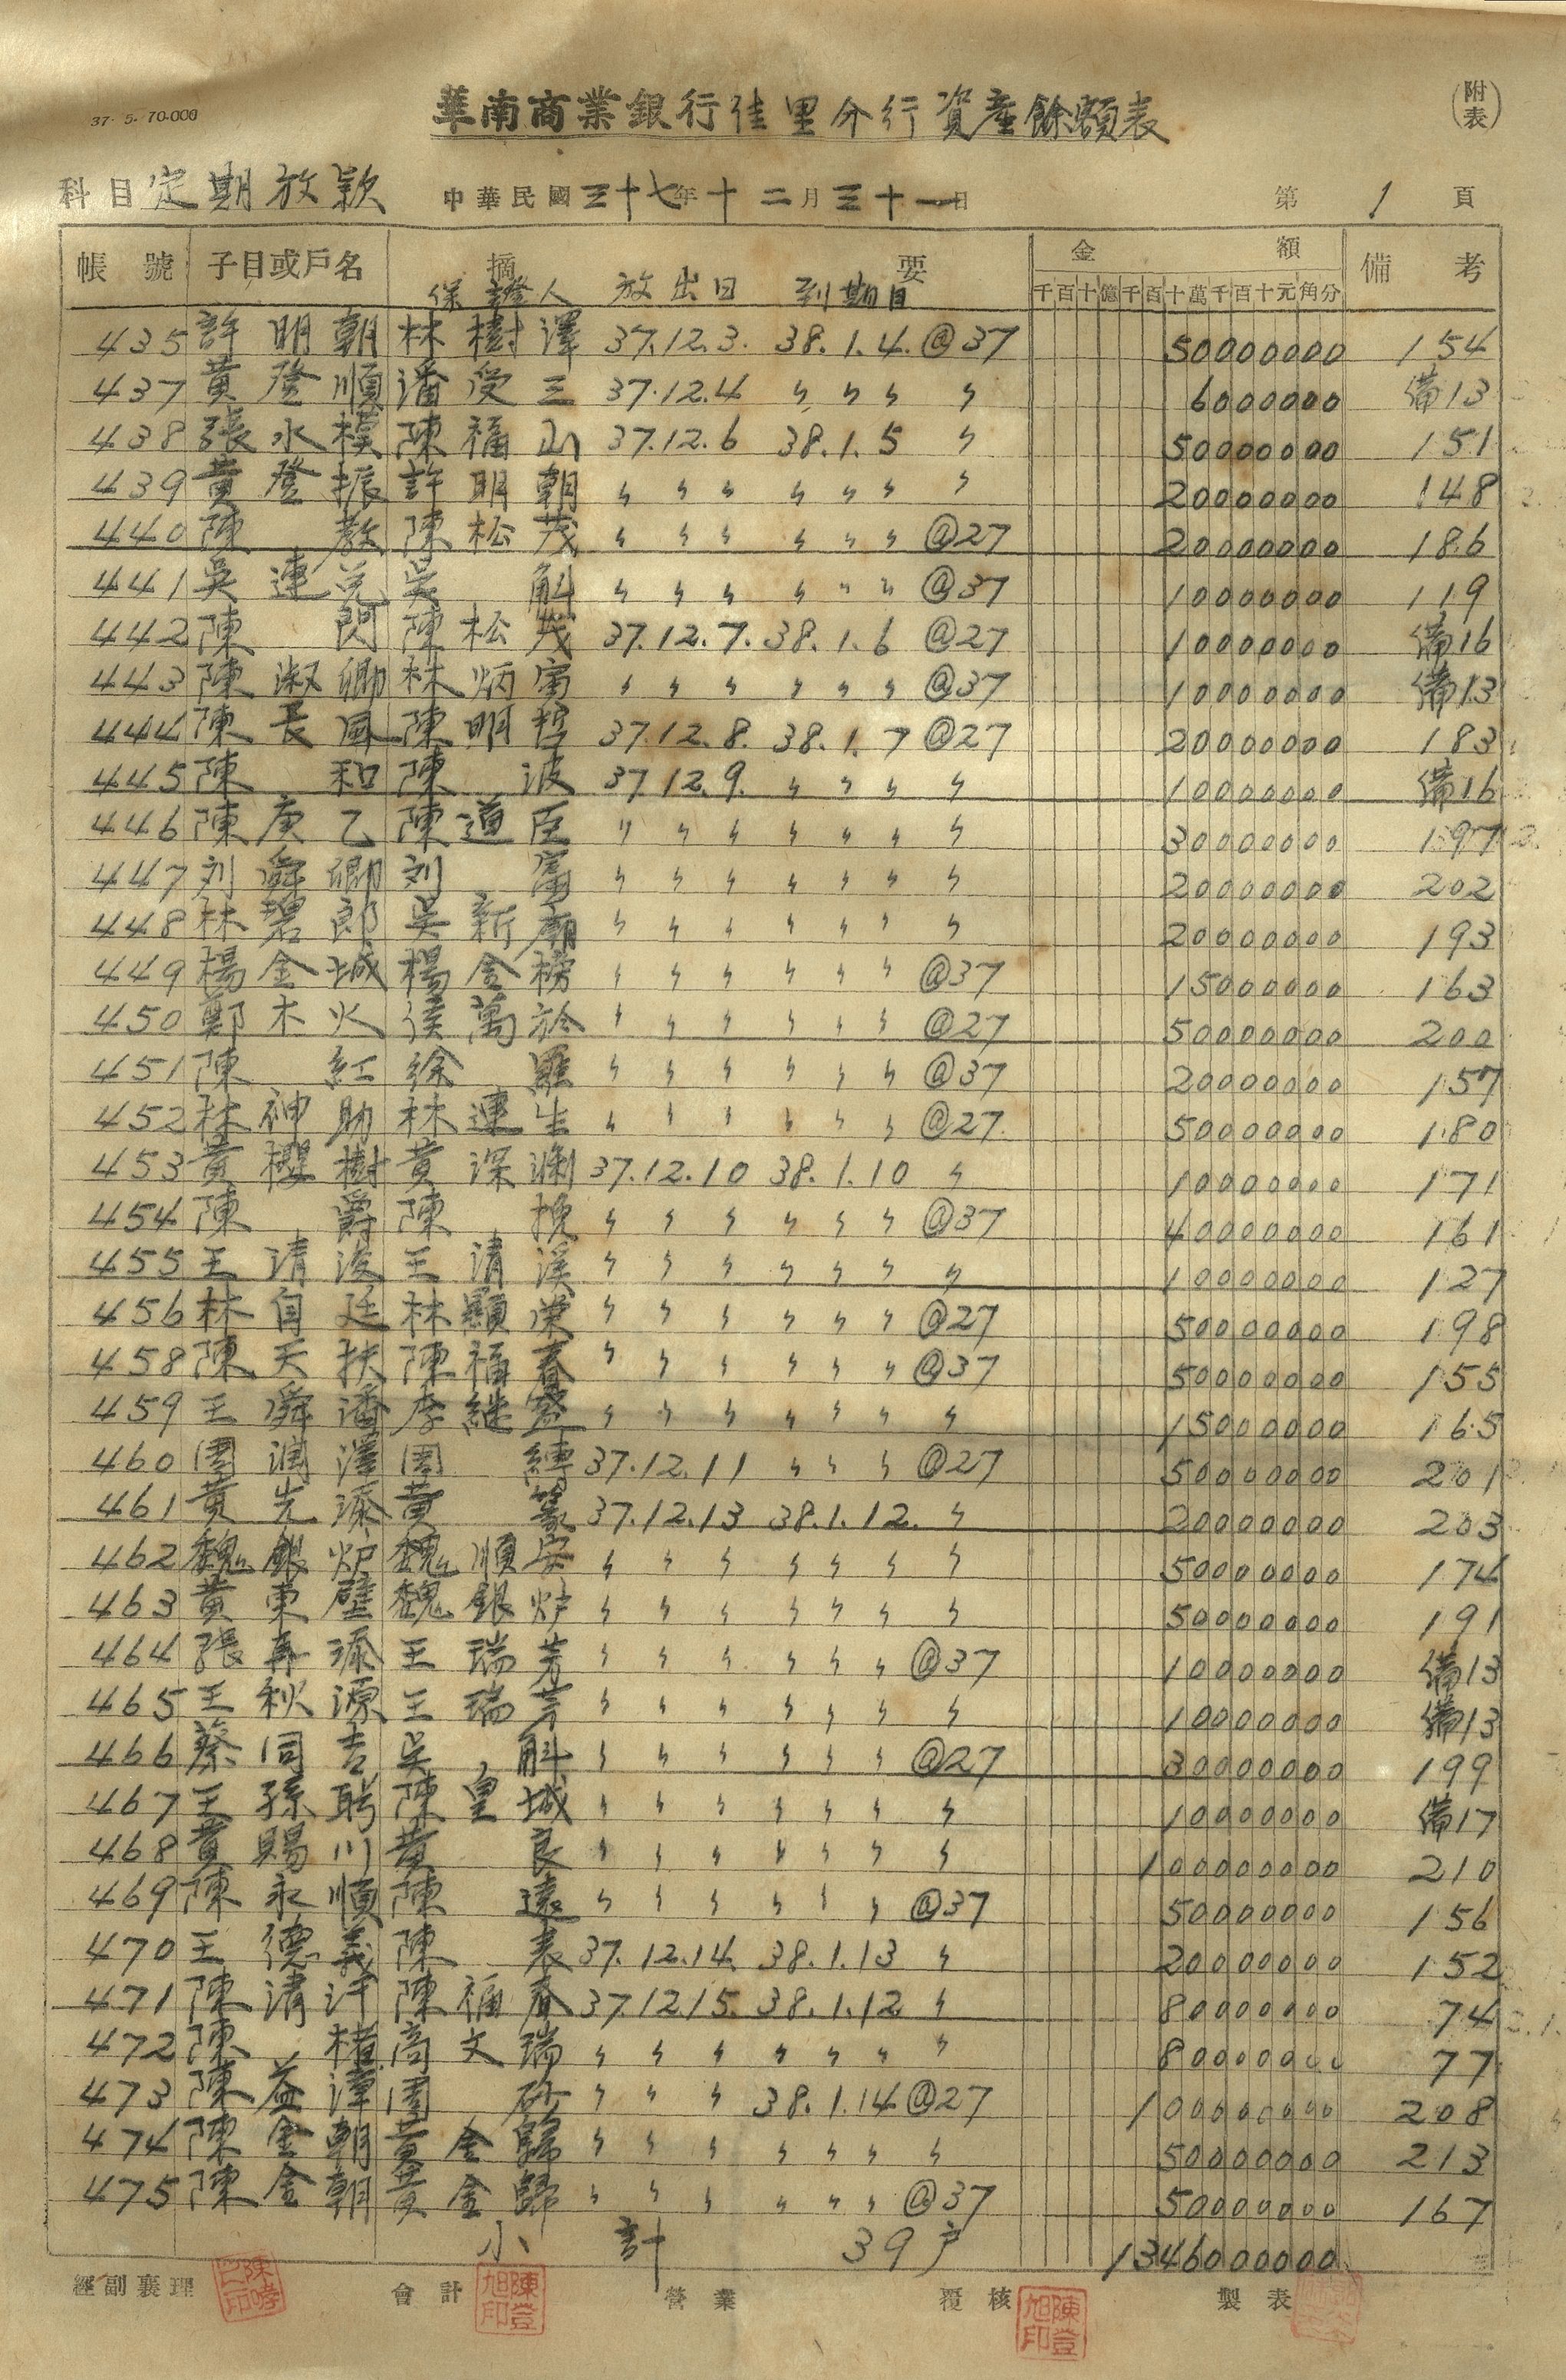 37. 5. 70.000
華南商業銀行佳里分行資產餘額表
(附表)
科目 定期放款 中華民國三十七年十二月三十一日 第 1 頁
帳號 子目或戶名 摘要 金額 備考
保證人 放出日 到期日 千百十億千百十萬千百十元角分
435 許明朝 林樹澤 37.12.3. 38.1.4. @37 50000000 154
437 黃登順 潘受三 37.12.4 〃 〃 〃 〃 6000000 備13
438 張水模 陳福山 37.12.6 38.1.5 〃 50000000 151
439 黃登振 許明朝 〃 〃 〃 〃 〃 〃 〃 20000000 148
440 陳教 陳松茂 〃 〃 〃 〃 〃 〃 @27 20000000 186
441 吳連兌 吳斛 〃 〃 〃 〃 〃 〃 @37 10000000 119
442 陳閃 陳松茂 37.12.7. 38.1.6 @27 10000000 備16
443 陳淑卿 林炳南 〃 〃 〃 〃 〃 〃 @37 10000000 備13
444 陳長風 陳明哲 37.12.8. 38.1.7 @27 20000000 183
445 陳和 陳波 37.12.9. 〃 〃 〃 〃 10000000 備16
446 陳庚乙 陳道臣 〃 〃 〃 〃 〃 〃 〃 30000000 197
447 刘舜卿 刘富 〃 〃 〃 〃 〃 〃 〃 20000000 202
448 林碧郎 吳新廟 〃 〃 〃 〃 〃 〃 〃 20000000 193
449 楊金城 楊金榜 〃 〃 〃 〃 〃 〃 @37 15000000 163
450 鄭木火 侯萬於 〃 〃 〃 〃 〃 〃 @27 50000000 200
451 陳紅 徐羅 〃 〃 〃 〃 〃 〃 @37 20000000 157
452 林神助 林連生 〃 〃 〃 〃 〃 〃 @27. 50000000 180
453 黃櫻樹 黃深渊 37.12.10 38.1.10 〃 10000000 171
454 陳爵 陳挽 〃 〃 〃 〃 〃 〃 @37 40000000 161
455 王清浚 王清溪 〃 〃 〃 〃 〃 〃 〃 10000000 127
456 林自廷 林顯榮 〃 〃 〃 〃 〃 〃 @27 50000000 198
458 陳天扶 陳福春 〃 〃 〃 〃 〃 〃 @37 50000000 155
459 王舜潘 李継盛 〃 〃 〃 〃 〃 〃 〃 15000000 165
460 周潤澤 周縛 37.12.11 〃 〃 〃 @27 50000000 201
461 黃光添 黃篆 37.12.13 38.1.12. 〃 20000000 203
462 魏銀炉 魏順安 〃 〃 〃 〃 〃 〃 〃 50000000 174
463 黃東壁 魏銀炉 〃 〃 〃 〃 〃 〃 〃 50000000 191
464 張再添 王瑞芳 〃 〃 〃 〃 〃 〃 @37 10000000 備13
465 王秋源 王瑞芳 〃 〃 〃 〃 〃 〃 〃 10000000 備13
466 蔡同吉 吳斛 〃 〃 〃 〃 〃 〃 @27 30000000 199
467 王孫聘 陳皇城 〃 〃 〃 〃 〃 〃 〃 10000000 備17
468 黃賜川 黃良 〃 〃 〃 〃 〃 〃 〃 100000000 210
469 陳永順 陳遠 〃 〃 〃 〃 〃 〃 @37 50000000 156
470 王德義 陳表 37.12.14. 38.1.13 〃 20000000 152
471 陳清汗 陳福春 37.12.15. 38.1.12 〃 80000000 74
472 陳楮 高文瑞 〃 〃 〃 〃 〃 〃 〃 80000000 77
473 陳益漳 周砂 〃 〃 〃 38.1.14 @27 100000000 208
474 陳金朝 黃金歸 〃 〃 〃 〃 〃 〃 〃 50000000 213
475 陳金朝 黃金歸 〃 〃 〃 〃 〃 〃 @37 50000000 167
小計 39戶 1346000000
經副襄理 會計 陳登旭印 營業 覆核 陳登旭印 製表